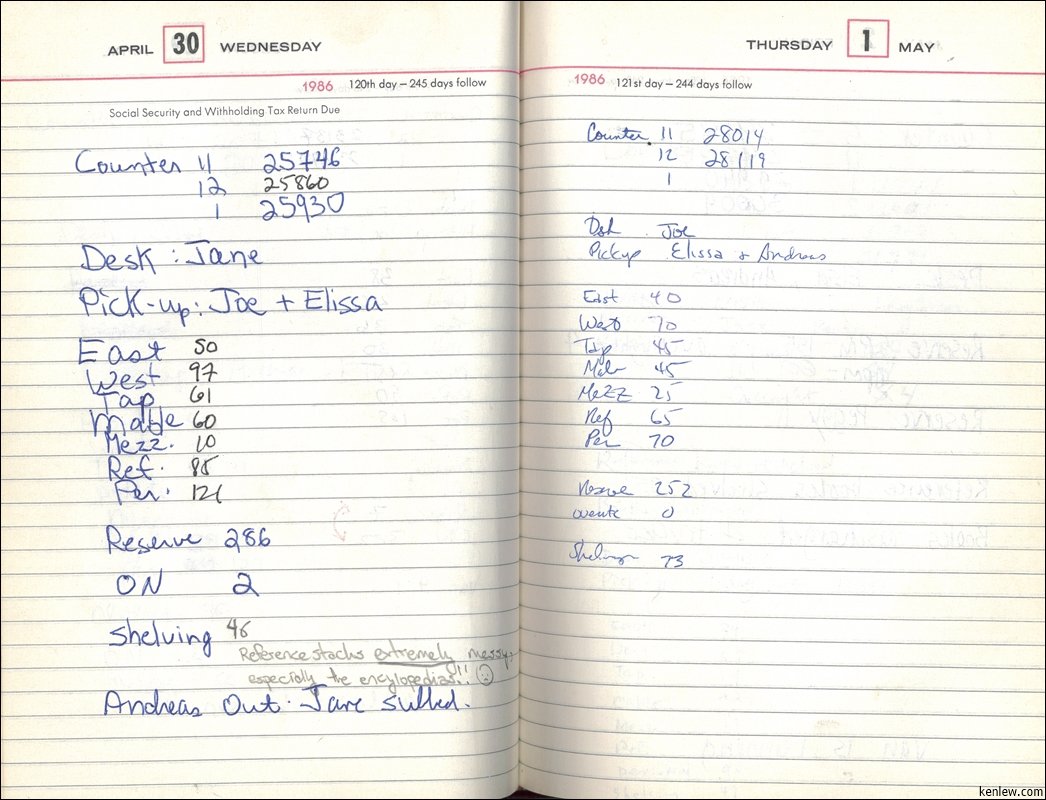 APRIL 30 WEDNESDAY
1986 120th day — 245 days follow
Social Security and Withholding Tax Return Due
Counter 11 25746
12 25860
1 25930
Desk : Jane
Pick-up: Joe + Elissa
East 50
West 97
Tap 61
Mable 60
Mezz. 10
Ref. 85
Per. 121
Reserve 286
ON 2
Shelving 46
Reference stacks extremely messy,
especially the encylopedias!!
Andreas Out. Jane sulked.
THURSDAY 1 MAY
1986 121st day — 244 days follow
Counter 11 28014
12 28119
1
Dsk Joe
Pickup Elissa + Andreas
East 40
West 70
Tap 45
45
Mezz 25
Ref 65
Per 70
252
0
Shelving 73
kenlew.com